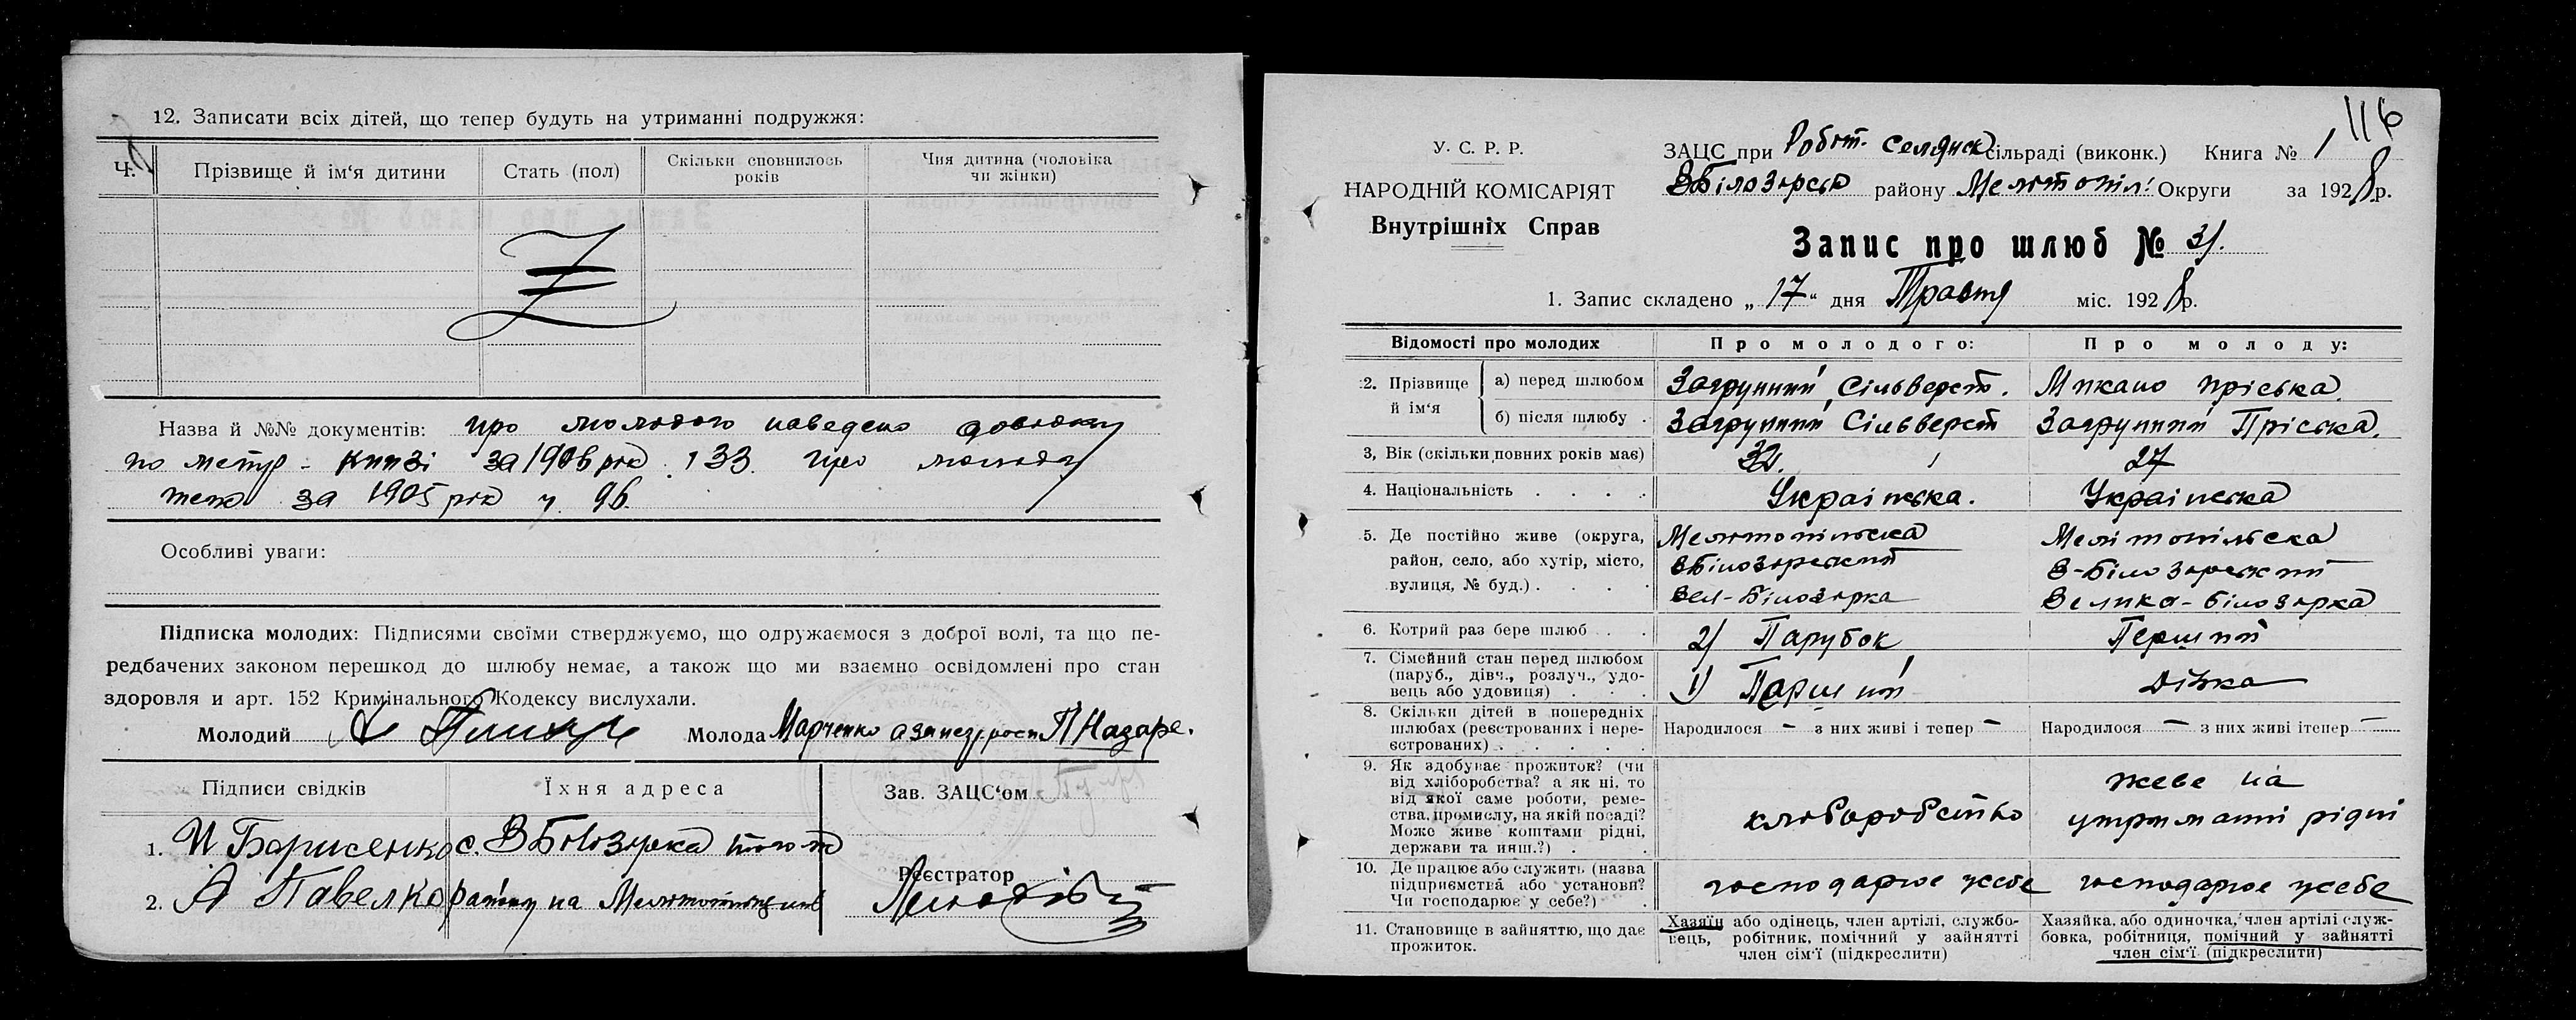 12. Записати всіх дітей, що тепер будуть на утриманні подружжя:
Ч.
Прізвище й ім‘я дитини
Стать (пол)
Скільки сповнилось
років
Чия дитина (чоловіка
чи жінки)
Z
Назва й №№ документів: про молодого наведено довідку
по метр - книзі за 1906 рік. 133. про молоду
теж за 1905 рік ч. 96.
Особливі уваги:
Підписка молодих: Підписями своїми стверджуємо, що одружаємося з доброї волі, та що пе-
редбачених законом перешкод до шлюбу немає, а також що ми взаємно освідомлені про стан
здоровля и арт. 152 Кримінального Кодексу вислухали.
Молодий
Молода Марченко а за неї П Назаре.
Підписи свідків
Їхня адреса
Зав. ЗАЦС‘ом
1. И Борисенко с. В Білозірка того ж
2. А Павелко району на Мелітопільщині
Реєстратор
116
У. С. Р. Р.
НАРОДНІЙ КОМІСАРІЯТ
Внутрішніх Справ
ЗАЦС при Робот. Селянск сільраді (виконк.) Книга № 1
ВБілозірськ району Мелітопіл. Округи за 1928 р.
Запис про шлюб № 31.
1. Запис складено „17“ дня Травня міс. 1928 р.
Відомості про молодих
Про молодого:
Про молоду:
2. Прізвище й ім‘я
а) перед шлюбом
Загрунний Сільверст.
Микало Пріська.
б) після шлюбу
Загрунний Сільверст
Загрунний Пріська.
3, Вік (скільки повних років має)
32.
27
4. Національність
Українська.
Українська
5. Де постійно живе (округа,
район, село, або хутір, місто,
вулиця, № буд.)
Мелітопільска
ВБілозірський
Вел-Білозірка
Мелітопільска
В-Білозірський
Велико-білозірка
6. Котрий раз бере шлюб
2) Парубок
Перший
7. Сімейний стан перед шлюбом
(паруб., дівч., розлуч., удо-
вець або удовиця)
1) Перший
Дівка
8. Скільки дітей в попередніх
шлюбах (реєстрованих і нере-
єстрованих)
Народилося – з них живі і тепер –
Народилося – з них живі і тепер –
9. Як здобуває прожиток? (чи
від хліборобства? а як ні, то
від якої саме роботи, реме-
ства, промислу, на якій посаді?
Може живе коштами рідні,
держави та инш.?)
хлоборобство
жеве на
утриманні рідні
10. Де працює або служить (назва
підприємства або установи?
Чи господарює у себе?)
господарює у себе
господарює у себе
11. Становище в зайняттю, що дає
прожиток.
Хазяїн або одінець, член артілі, службо-
вець, робітник, помічний у зайнятті
член сім‘ї (підкреслити)
Хазяйка, або одиночка, член артілі служ-
бовка, робітниця, помічний у зайнятті
член сім‘ї (підкреслити)